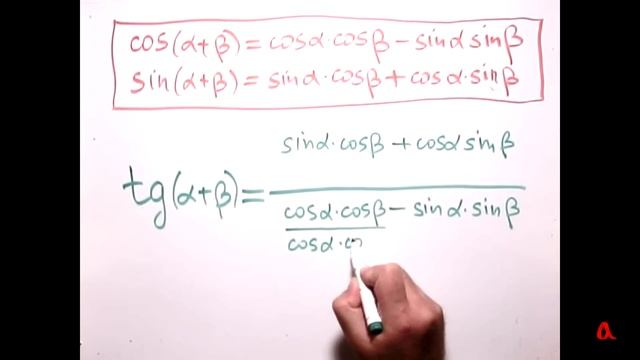 cos(α+β)=cosα·cosβ-sinα sinβ
sin(α+β)=sinα·cosβ+cosα·sinβ
sinα·cosβ+cosα sinβ
tg(α+β)=
cosα·cosβ-sinα·sinβ
cosα·co
a